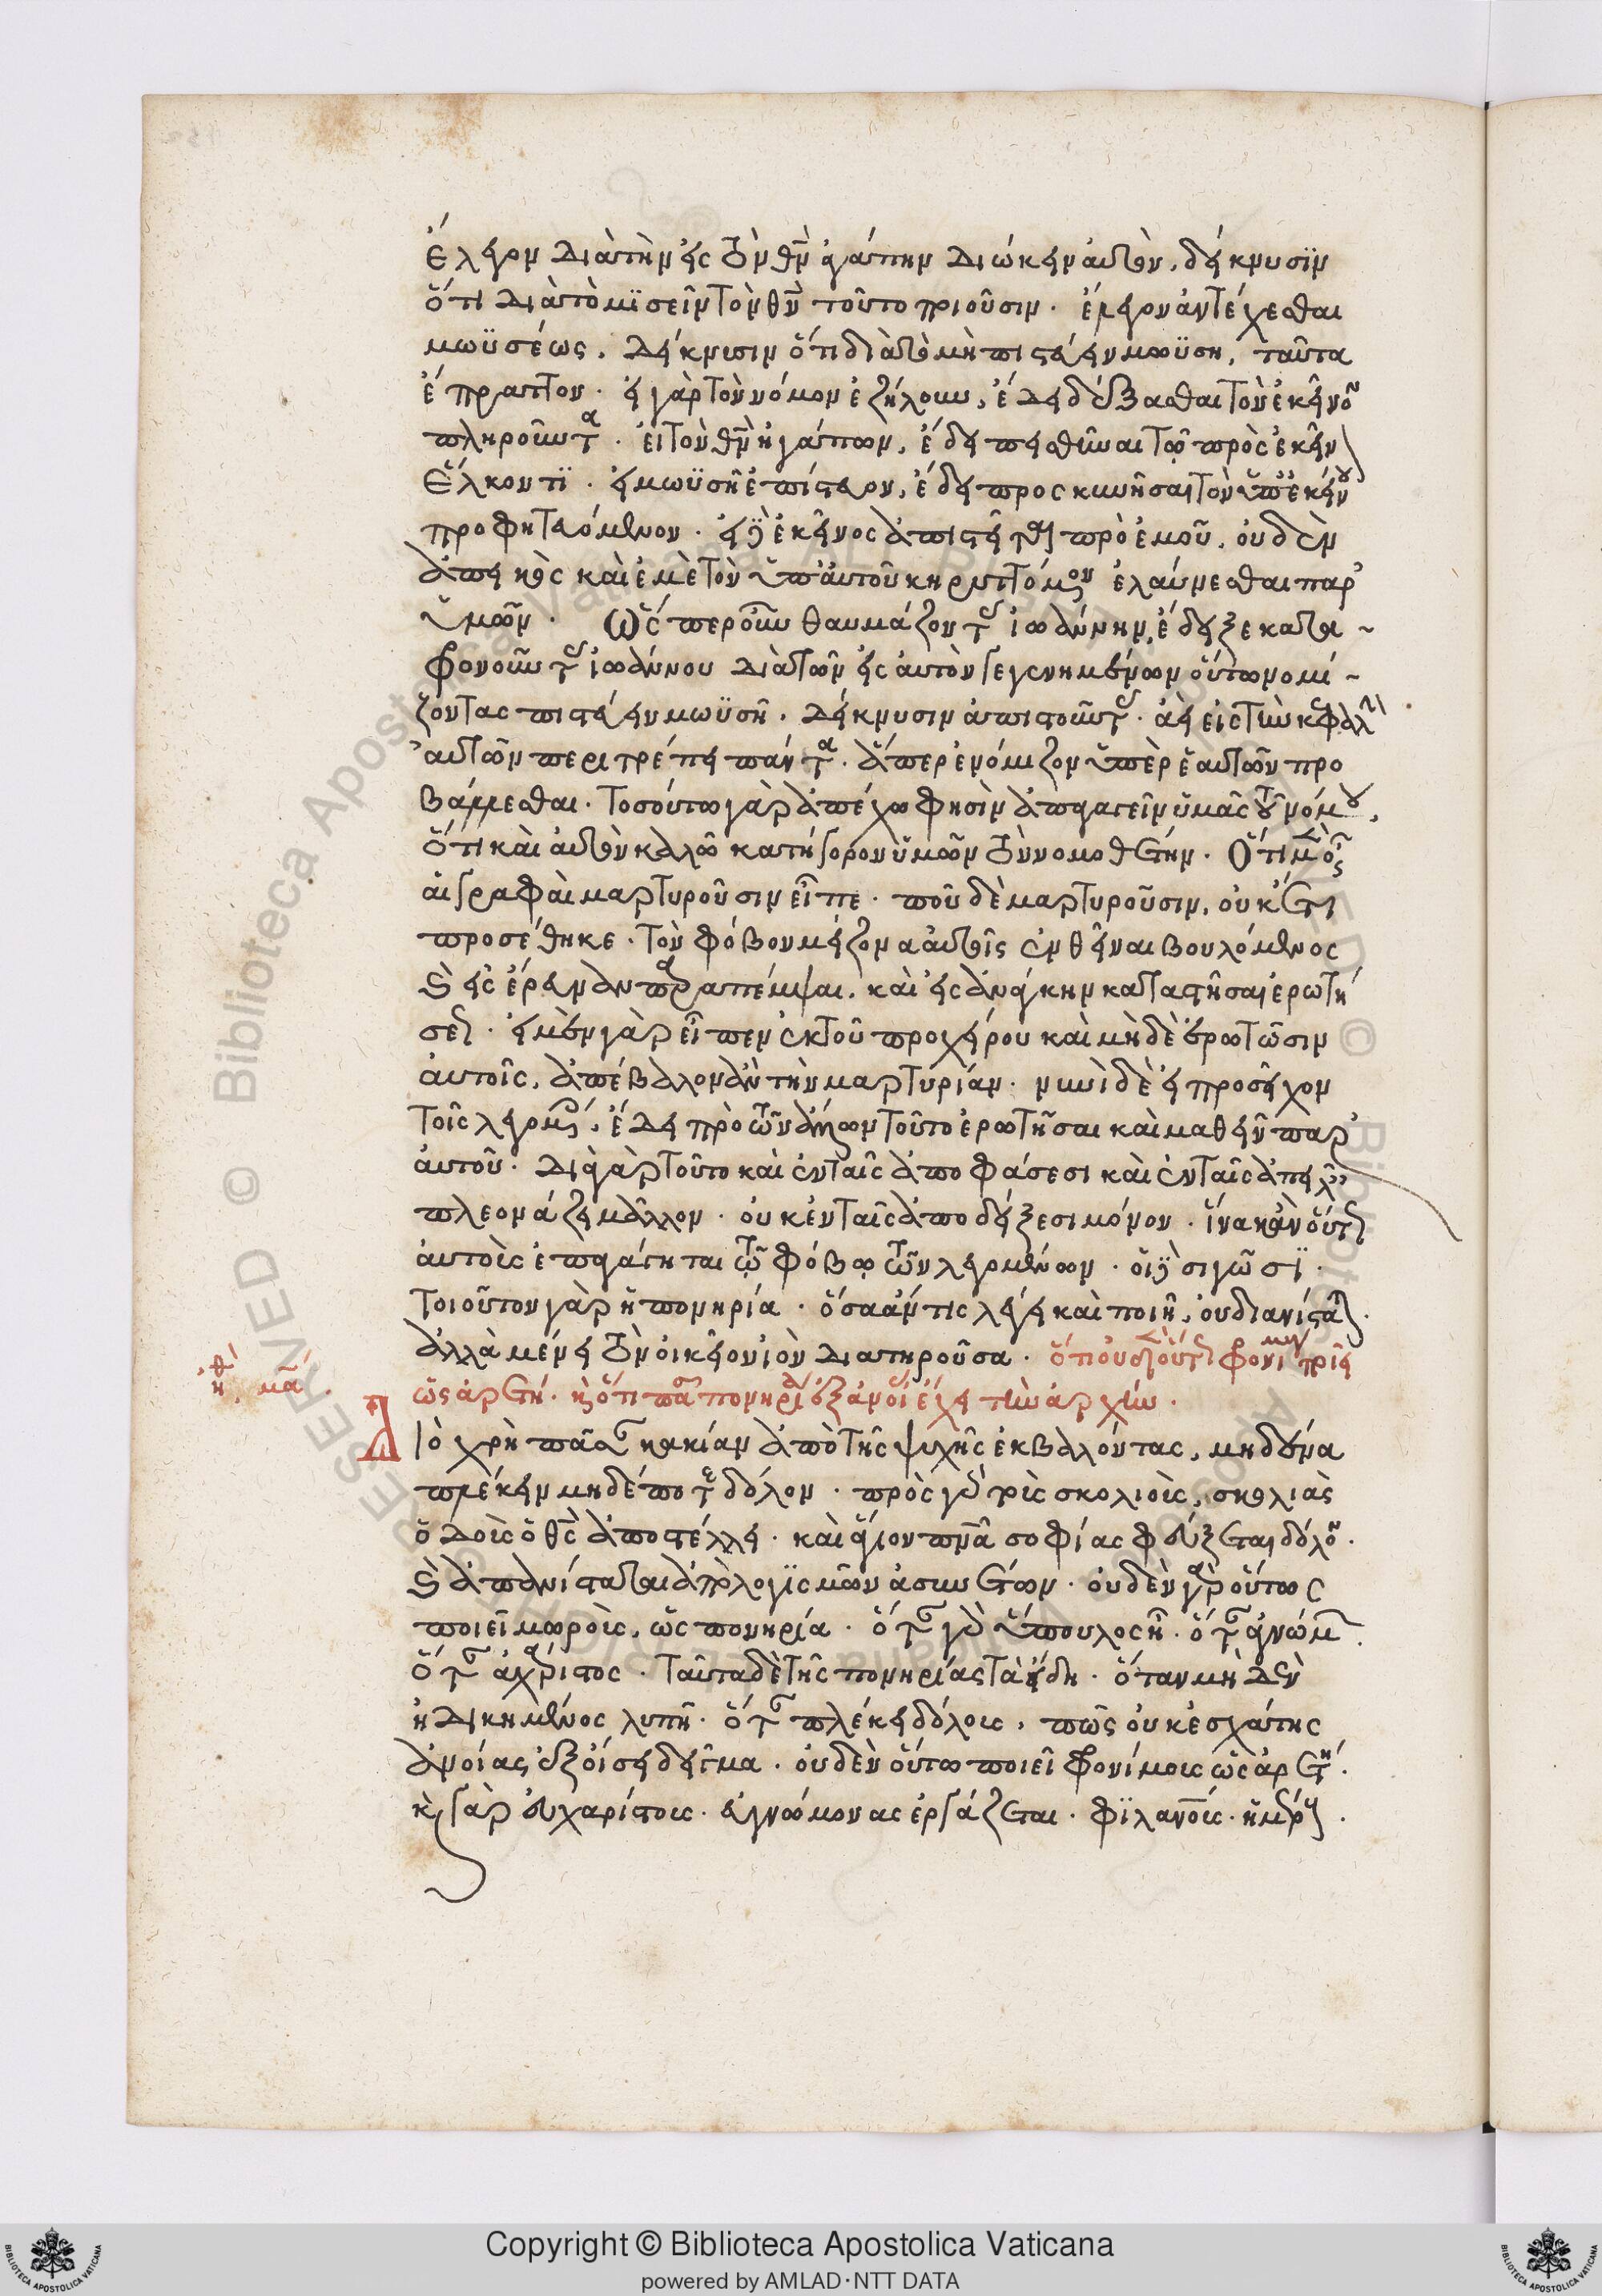 ἔλεγον διὰ τὴν εἰς τὸν θν̄ ἀγάπην διώκειν αὐτόν. δείκνυσϊν
ὅτι διὰ τὸ μϊσεῖν τὸν θν̄ τοῦτο ποιοῦσιν. ἔλεγον ἀντέχεσθαι
μωϋσέως. δείκνυσιν ὅτι διὰ τὸ μὴ πιστεύειν μωϋσῆ, ταῦτα
ἔπραττον. εἰ γὰρ τὸν νόμον ἐζήλουν, ἔδει δέξασθαι τὸν ἐκεῖνον
πληροῦντα. εἰ τὸν θν̄ ἠγάπων, ἔδει πεισθῆναι τῷ πρὸς ἐκεῖνον
ἕλκοντϊ. εἰ μωϋσῆ ἐπίστευον, ἔδει προσκυνῆσαι τὸν ὑπ' ἐκείνου
προφητευόμενον. εἰ δὲ ἐκεῖνος ἀπιστεῖται πρὸ ἐμοῦ, οὐδὲν
ἀπεικὸς καὶ ἐμὲ τὸν ὑπ' αὐτοῦ κηρυττόμενον ἐλαύνεσθαι παρ'
ὑμῶν. Ὥσπερ οὖν θαυμάζοντας ἰωάννην, ἔδειξε κατα
φρονοῦντας ἰωάννου διὰ τῶν εἰς αὐτὸν γεγενημένων οὕτω νομί
ζοντας πιστεύειν μωϋσῆ. δείκνυσιν ἀπιστοῦντας. ἀεὶ εἰς τὴν κεφαλὴν
αὐτῶν περιτρέπει πάντα. ἅπερ ἐνόμιζον ὑπὲρ ἑαυτῶν προ
βάλλεσθαι. Τοσοῦτω γὰρ ἀπέχω φησὶν ἀπαγαγεῖν ὑμᾶς τοῦ νόμου,
ὅτι καὶ αὐτὸν καλῶ κατήγορον ὑμῶν τὸν νομοθέτην. Ὅτι μὲν οὖν
αἱ γραφαὶ μαρτυροῦσιν εἶπε. ποῦ δὲ μαρτυροῦσιν, οὐκέτι
προσέθηκε. Τὸν φόβον μείζονα αὐτοῖς ἐνθεῖναι βουλόμενος
καὶ εἰς ἔρευναν παραπέμψαι, καὶ εἰς ἀνάγκην καταστῆσαι ἐρωτή
σεως. εἰ μὲν γὰρ εἶπεν ἐκ τοῦ προχείρου καὶ μηδὲ ἐρωτῶσιν
αὐτοῖς, ἀπέβαλον ἂν τὴν μαρτυρίαν. νυνὶ δὲ εἰ προσεῖχον
τοῖς λεγομένοις, ἔδει πρὸ τῶν ἄλλων τοῦτο ἐρωτῆσαι καὶ μαθεῖν παρ'
αὐτοῦ. διὰ γὰρ τοῦτο καὶ ἐν ταῖς ἀποφάσεσι καὶ ἐν ταῖς ἀπειλαῖς
πλεονάζει μᾶλλον. οὐκ ἐν ταῖς ἀποδείξεσι μόνον. ἵνα κἂν οὕτως
αὐτοὺς ἐπαγάγηται τῷ φόβῳ τῶν λεγομένων. οἱ δὲ σιγῶσϊ.
Τοιοῦτον γὰρ ἡ πονηρία. ὅσα ἄν τις λέγει καὶ ποιῆ, οὐ διανίσταται.
ἀλλὰ μένει τὸν οἰκεῖον ἰὸν διατηροῦσα.
ὡς ἀρετή.
Διὸ χρὴ πᾶσαν κακίαν ἀπὸ τῆς ψυχῆς ἐκβαλόντας, μηδένα
πλέκειν μηδέποτε δόλον. πρὸς γὰρ τοὺς σκολιοὺς, σκολιὰς
ὁδοὺς ὁ θς̄ ἀποστέλλει. καὶ ἅγιον πνᾶ σοφίας φεύξεται δόλον.
καὶ ἀπανίσταται ἀπὸ λογϊσμῶν ἀσυνέτων. οὐδὲν γὰρ οὕτως
ποιεῖ μωροὺς, ὡς πονηρία. ὅταν γὰρ ὕπουλος ἦ. ὅταν ἀγνώμων.
ὅταν ἀχάριστος. ταῦτα δὲ τῆς πονηρίας τὰ εἴδη. ὅταν μηδὲν
ἠδικημένος λυπῆ. ὅταν πλέκει δόλους, πῶς οὐκ ἐσχάτης
ἀνοίας ἐξοίσει δεῖγμα. οὐδὲν οὕτω ποιεῖ φρονίμους ὡς ἀρετή.
καὶ γὰρ εὐχαρίστους. εὐγνώμονας ἐργάζεται. φϊλανους. ἡμέρους.